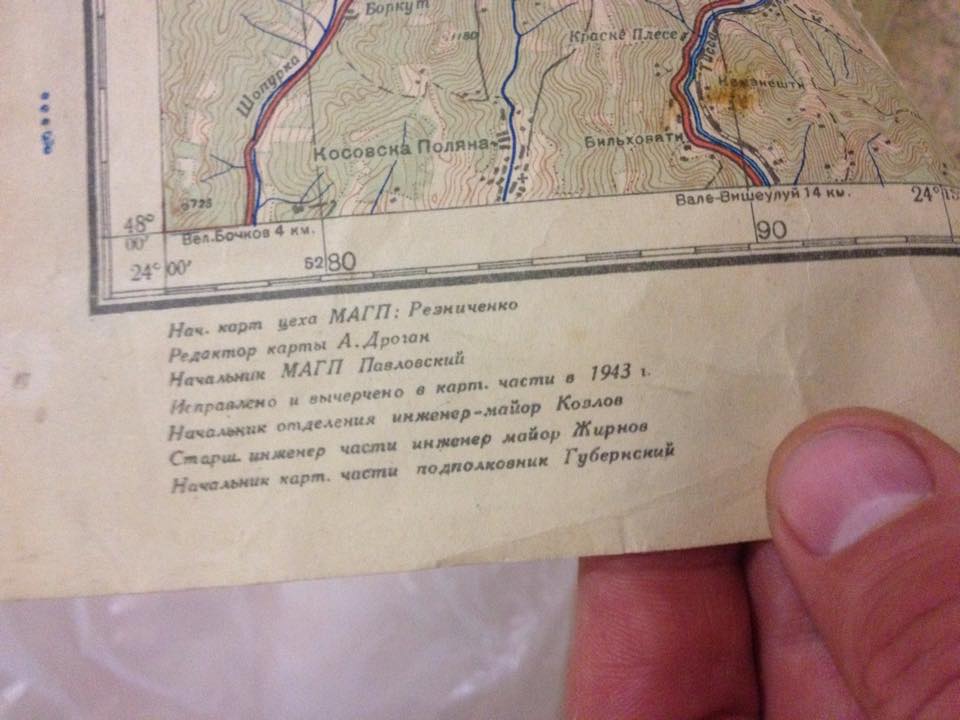 Боркут
1180
Красне Плесе
Тисса
Шопурка
Косовска Поляна
Бильховяти
725
Вел.Бочков 4 км.
Вале-Вишеулуй 14 км.
24°
48°
00'
24° 00'
5280
90
Нач. карт цеха МАГП: Резниченко
Редактор карты А. Дроган
Начальник МАГП Павловский
Исправлено и вычерчено в карт. части в 1943 г.
Начальник отделения инженер-майор Козлов
Старш. инженер части инженер майор Жирнов
Начальник карт. части подполковник Губернский